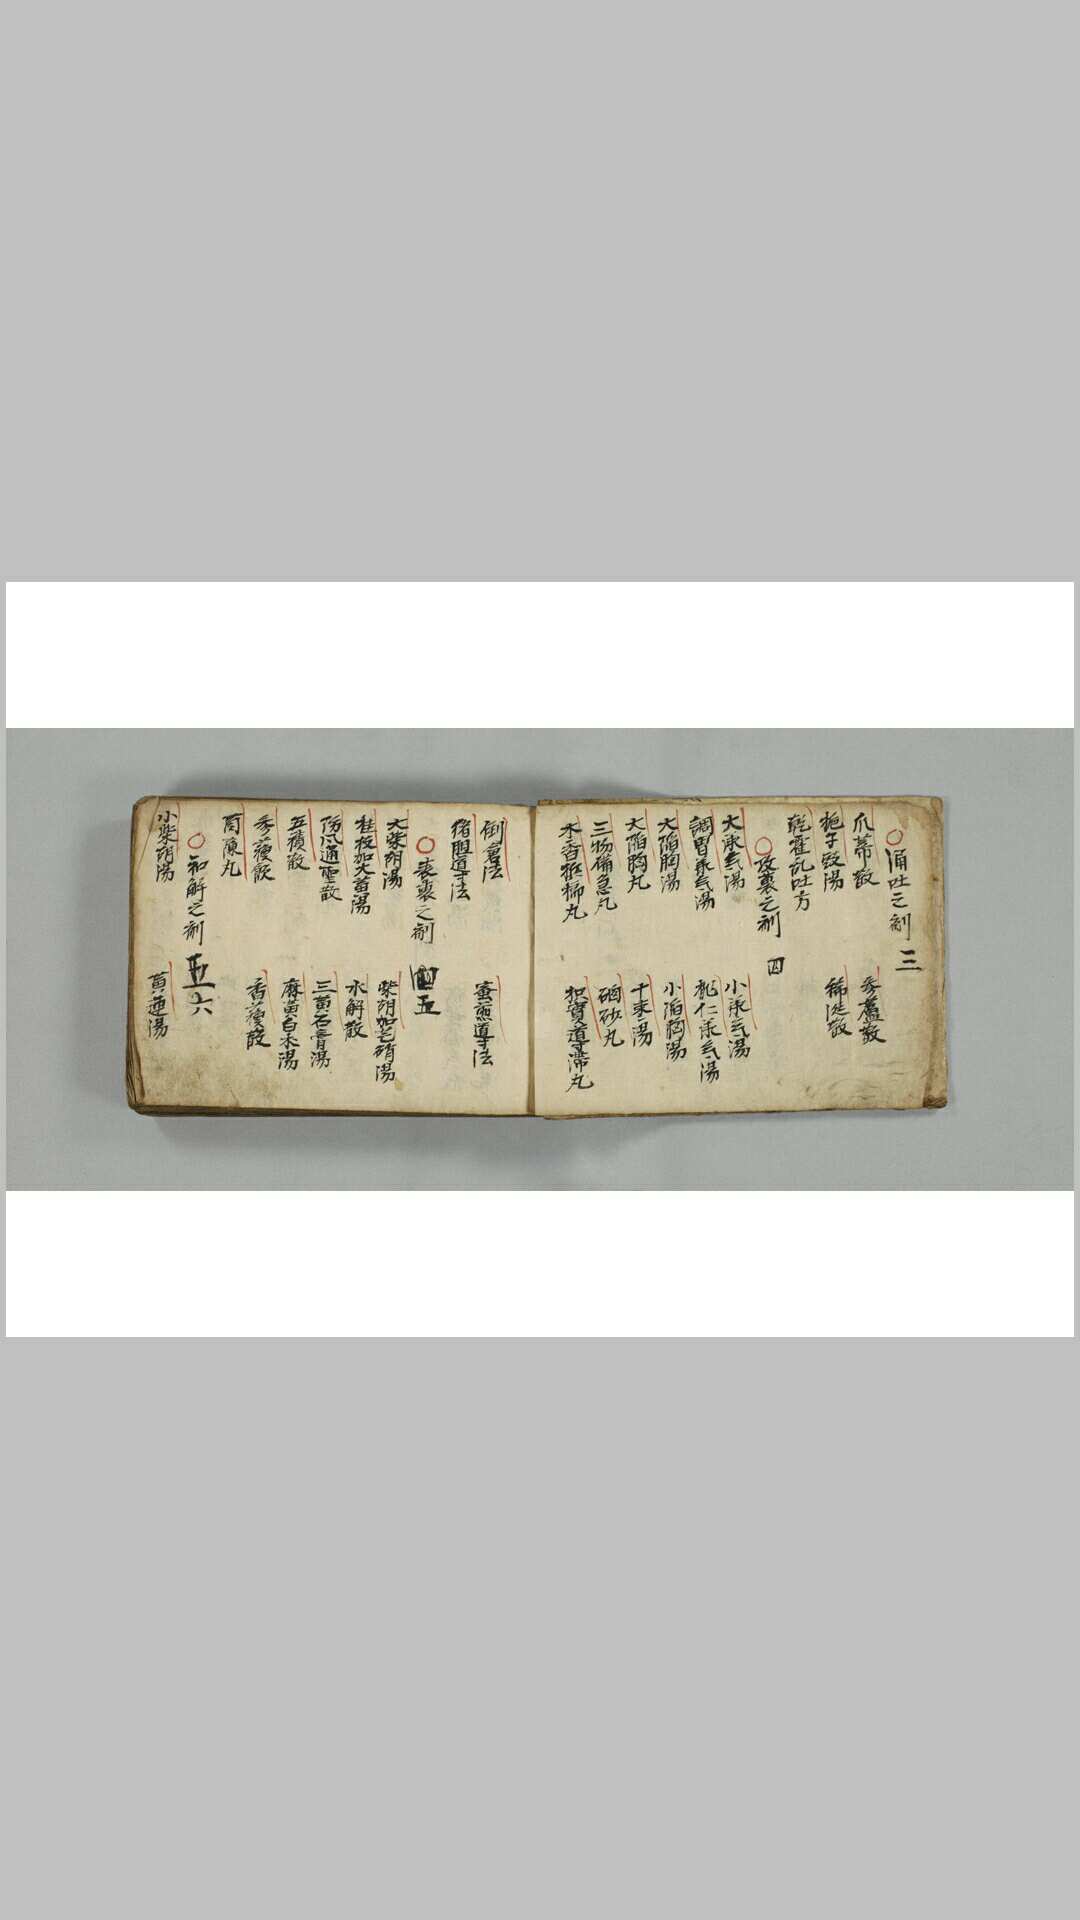 涌吐之劑 三
瓜蒂散 參蘆散
梔子豉湯 稀涎散
乾霍乱吐方
攻裏之劑 四
大承气湯 小承气湯
調胃承气湯 桃仁承气湯
大陷胸湯 小陷胸湯
大陷胸丸 十棗湯
三物備急丸 硇砂丸
木香梹榔丸 枳實導滯丸
倒倉法 蜜煎導法
猪胆導法
表裏之劑 五
大柴胡湯 柴胡加芒硝湯
桂枝加大黃湯 水解散
防風通聖散 三黃石膏湯
五積散 麻黃白朮湯
參蘇飲 香蘇散
茵蔯丸
和解之劑 六
小柴胡湯 黃連湯